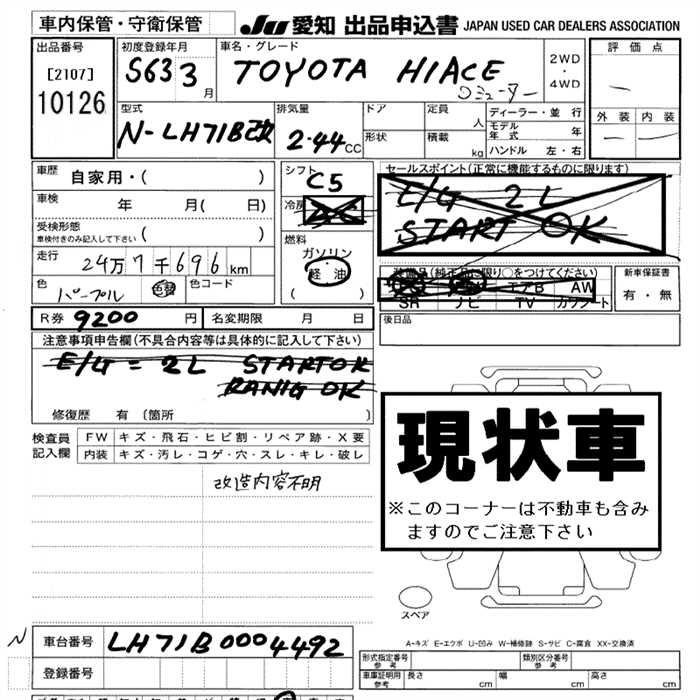 車内保管・守衛保管 JU 愛知 出品申込書 JAPAN USED CAR DEALERS ASSOCIATION
出品番号 初度登録年月 車名・グレード 評価点
[2107] S63 3月 TOYOTA HIACE コミューター 2WD・4WD
10126
型式 排気量 ドア 定員 人 ディーラー・並行 外装 内装
N-LH71B改 2.44CC 形状 積載 kg モデル年式 年 ー ー
ハンドル 左・右
車歴 自家用・( ) シフト C5 セールスポイント(正常に機能するものに限ります)
車検 年 月( 日) 冷房 E/G 2L
受検形態 START OK
車検付きのみ記入して下さい ( ) 燃料
走行 24万7千696km ガソリン・軽油 装備品(純正品に限り○をつけてください) 新車保証書
色 パープル 色替 色コード ( ) エアB AW 有・無
SR ナビ TV カワシート
R券 9200 円 名変期限 月 日 後日品
注意事項申告欄(不具合内容等は具体的に記入して下さい)
E/G = 2L START OK
RANIG OK
修復歴 有 〔箇所 〕
現状車
※このコーナーは不動車も含み
ますのでご注意下さい
検査員記入欄 FW キズ・飛石・ヒビ割・リペア跡・X要
内装 キズ・汚レ・コゲ・穴・スレ・キレ・破レ
改造内容不明
スペア
N 車台番号 LH71B0004492 A-キズ E-エクボ U-凹み W-補修跡 S-サビ C-腐食 XX-交換済
登録番号 形式指定番号 参考 類別区分番号 参考
車庫証明用 参考 長さ cm 幅 cm 高さ cm